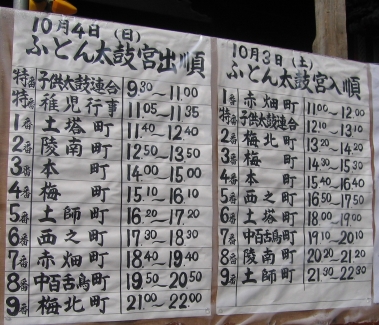 10月4日(日)
ふとん太鼓宮出順
特番 子供太鼓連合 9:30~11:00
特番 稚児行事 11:05~11:35
1番 土塔町 11:40~12:40
2番 陵南町 12:50~13:50
3番 本町 14:00~15:00
4番 梅町 15:10~16:10
5番 土師町 16:20~17:20
6番 西之町 17:30~18:30
7番 赤畑町 18:40~19:40
8番 中百舌鳥町 19:50~20:50
9番 梅北町 21:00~22:00
10月3日(土)
ふとん太鼓宮入順
1番 赤畑町 11:00~12:00
特番 子供太鼓連合 12:10~13:10
2番 梅北町 13:20~14:20
3番 梅町 14:30~15:30
4番 本町 15:40~16:40
5番 西之町 16:50~17:50
6番 土塔町 18:00~19:00
7番 中百舌鳥町 19:10~20:10
8番 陵南町 20:20~21:20
9番 土師町 21:30~22:30